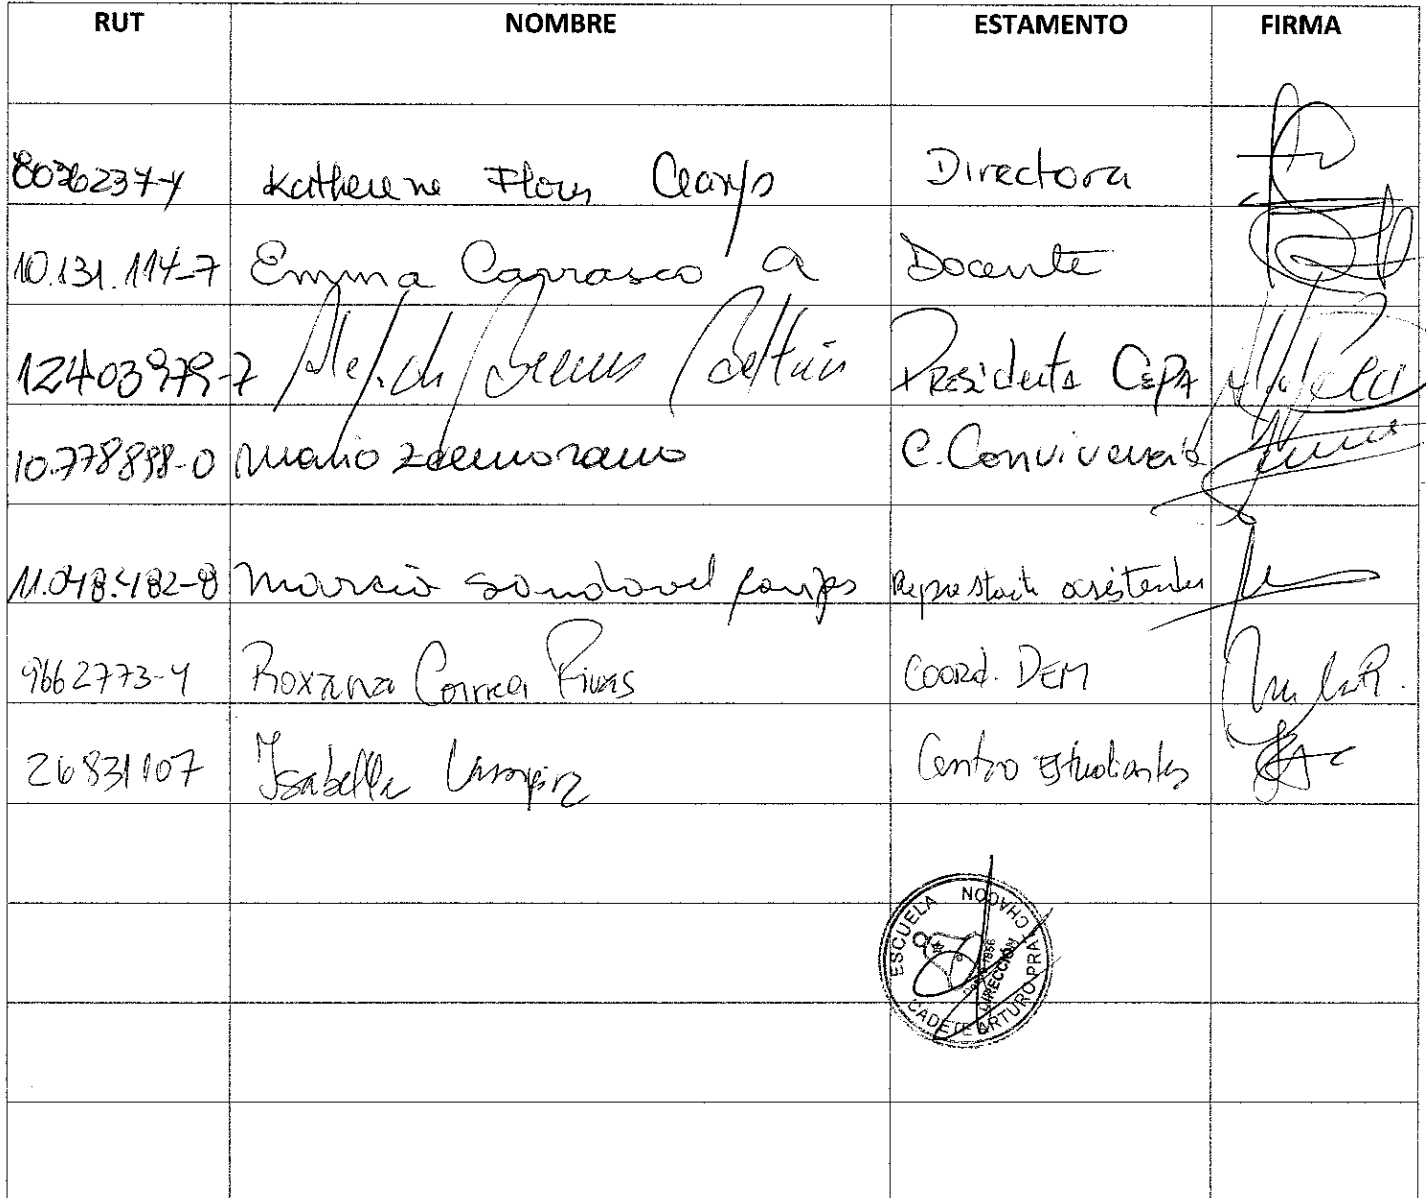 RUT NOMBRE ESTAMENTO FIRMA
Katherine Flores Directora
10.131.114-7 Emma Carrasco A Docente
Beltrán Presidenta CEPA
10.778898-0 Mario Zamorano C. Convivencia
11.048.482-8 Marcia Sandoval asistentes
9662773-4 Roxana Correa Rivas Coord. DEM
26831107 Isabella Centro Estudiantes
ESCUELA CADETE ARTURO PRAT CHACON
DIRECCIÓN